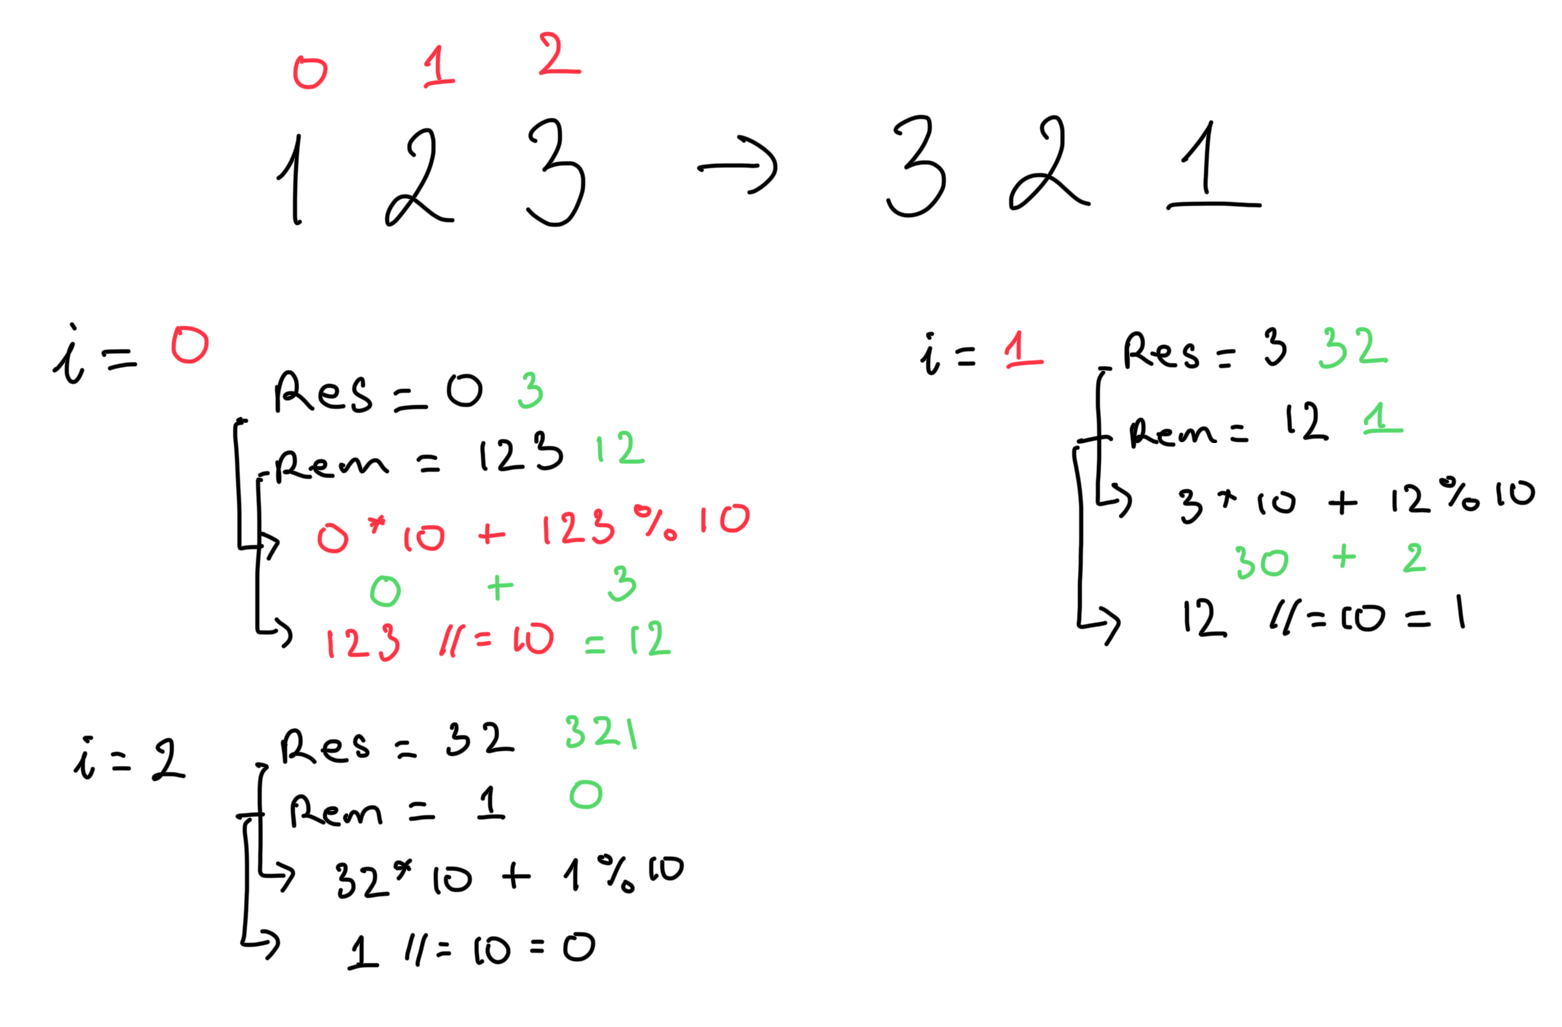 0 1 2
1 2 3 → 3 2 1
i = 0
Res = 0 3
Rem = 123 12
0 * 10 + 123 % 10
0 + 3
123 //= 10 = 12
i = 1
Res = 3 32
Rem = 12 1
3 * 10 + 12 % 10
30 + 2
12 //= 10 = 1
i = 2
Res = 32 321
Rem = 1 0
32 * 10 + 1 % 10
1 //= 10 = 0